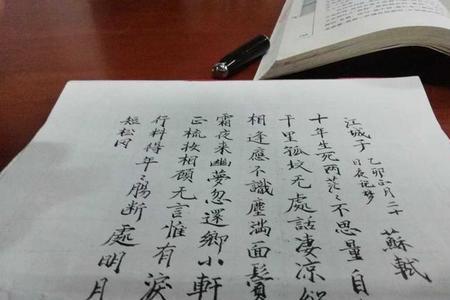 江城子 乙卯正月二十日夜記夢 蘇軾
十年生死两茫〻不思量自
千里孤墳无處話淒涼縱
相逢應不識塵滿面鬢
霜夜来幽夢忽還鄉小軒
正梳妝相顧无言惟有淚
行料得年〻腸斷處明月
短松冈